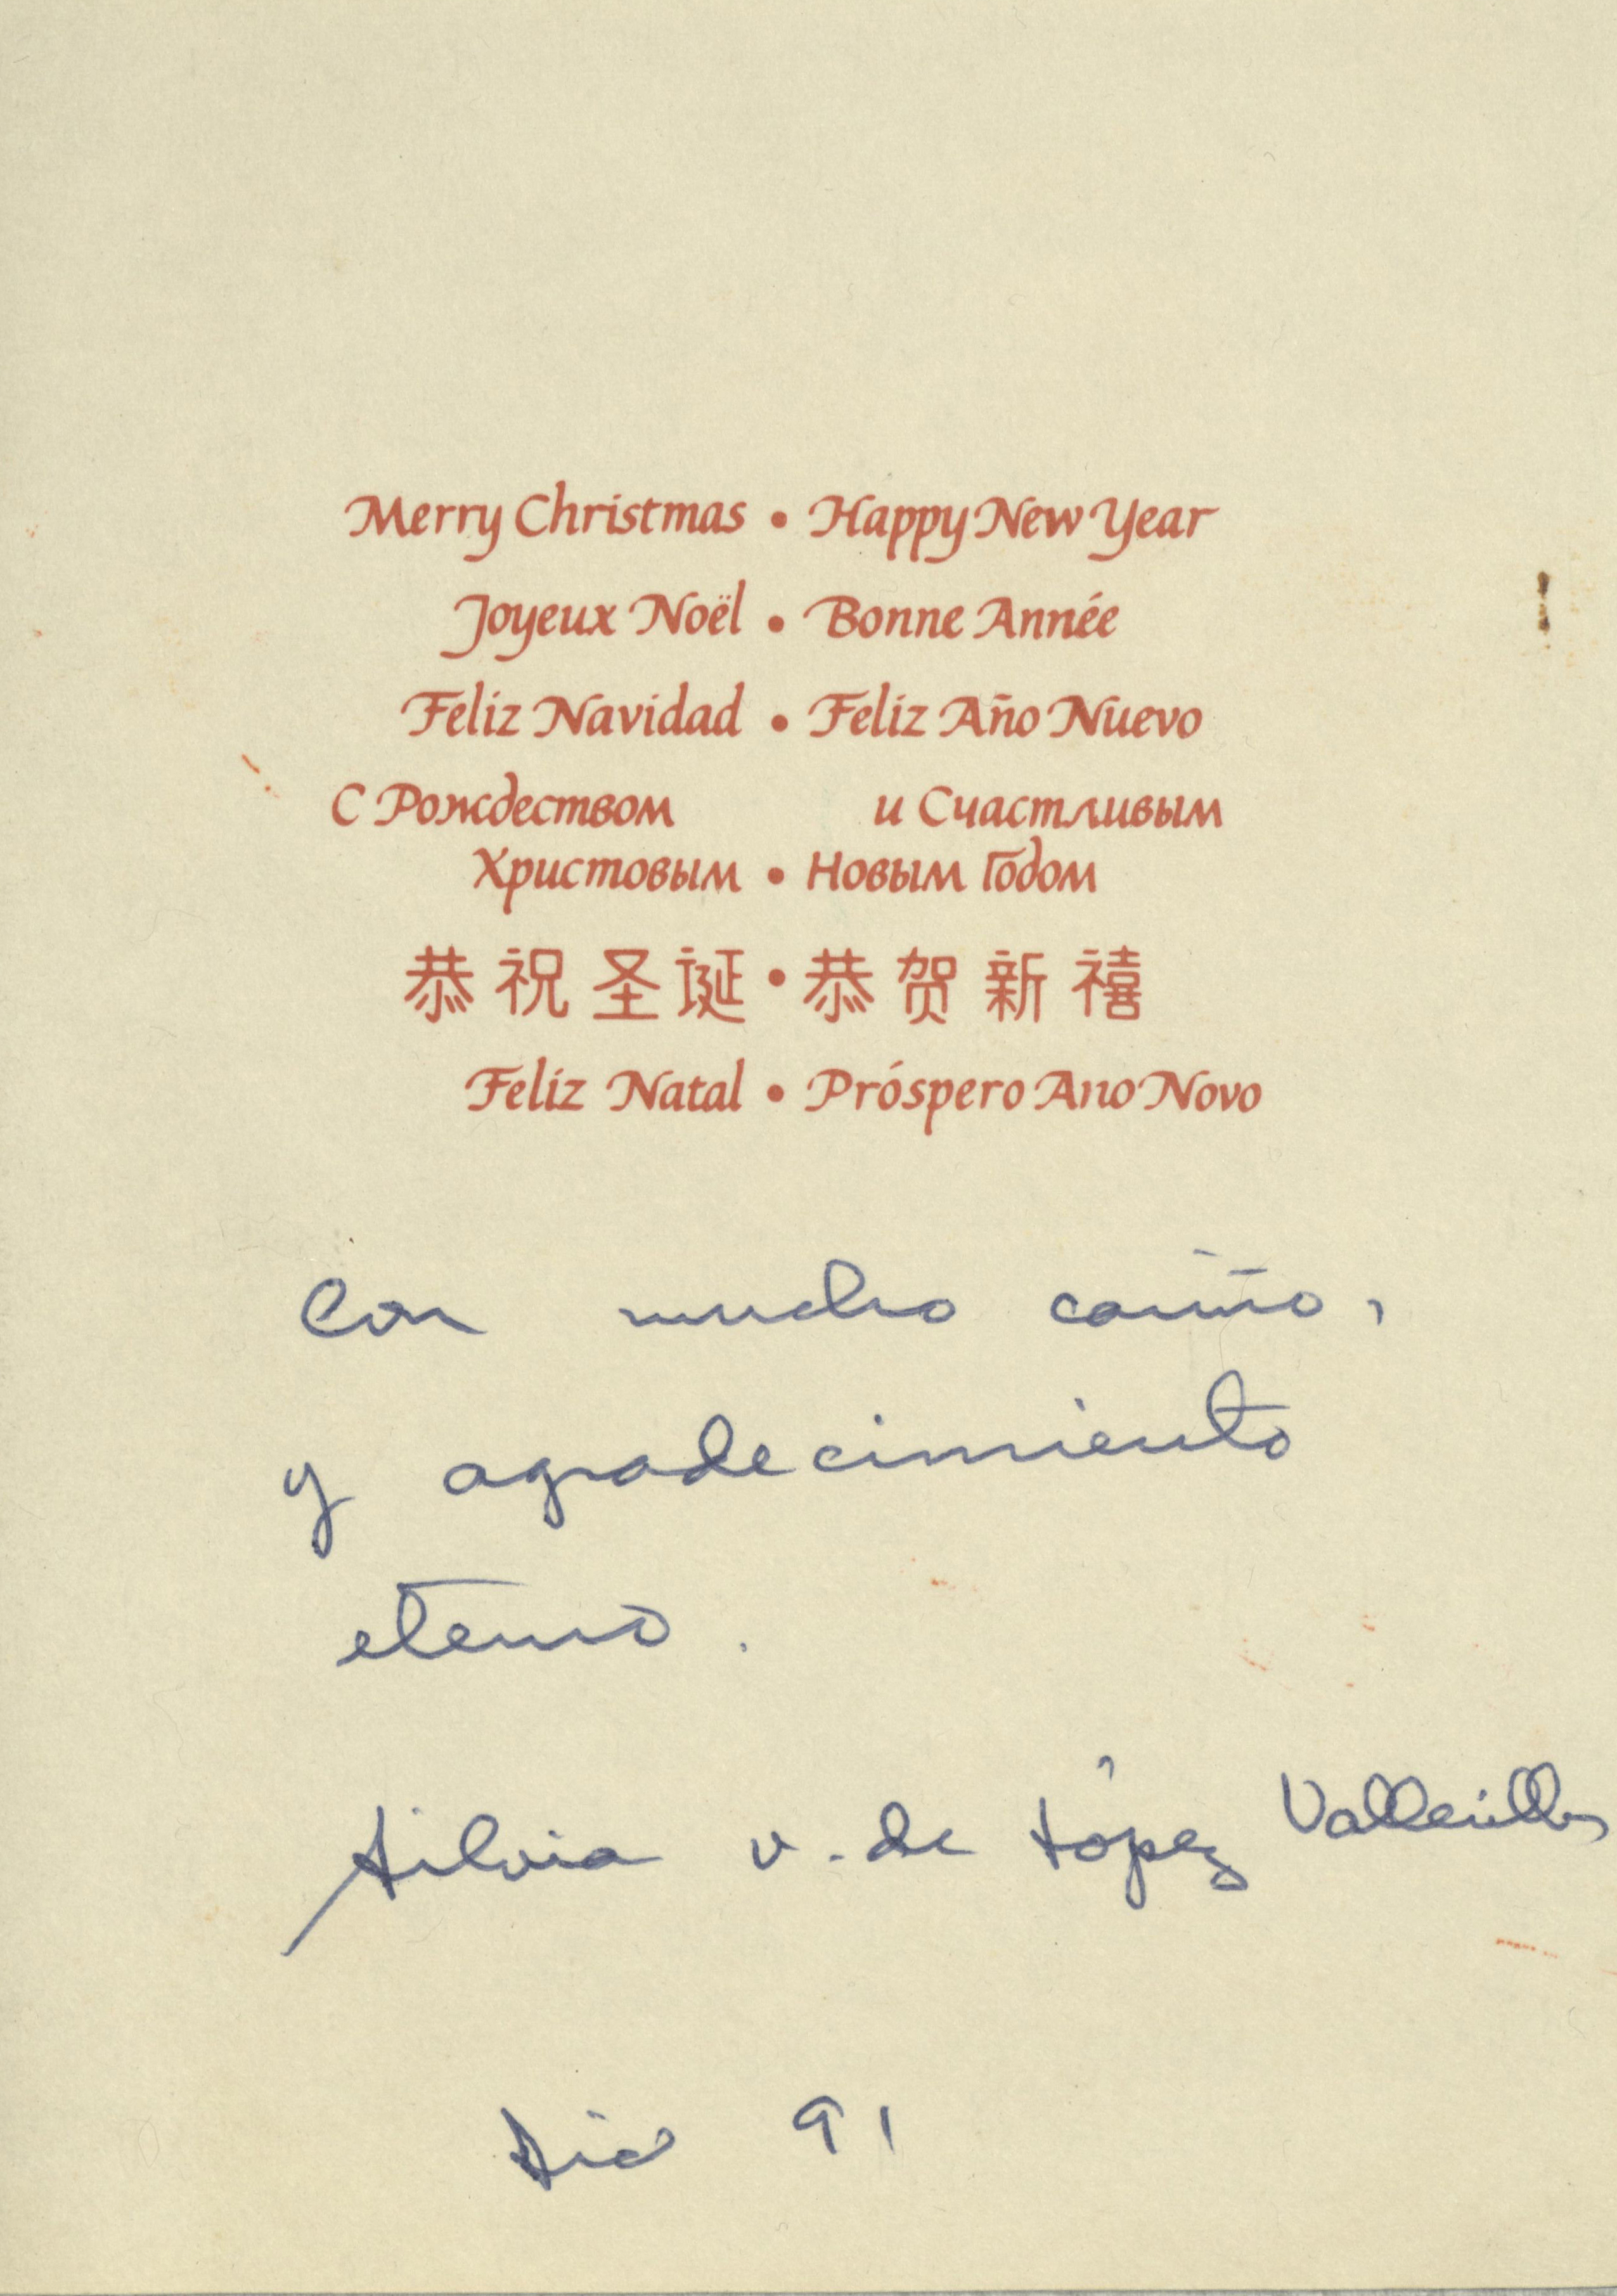 Merry Christmas • Happy New Year
Joyeux Noël • Bonne Année
Feliz Navidad • Feliz Año Nuevo
С Рождеством и Счастливым
Христовым • Новым Годом
恭祝圣诞•恭贺新禧
Feliz Natal • Próspero Ano Novo
Con mucho cariño,
y agradecimiento
eterno.
Silvia v. de López
Dic 91